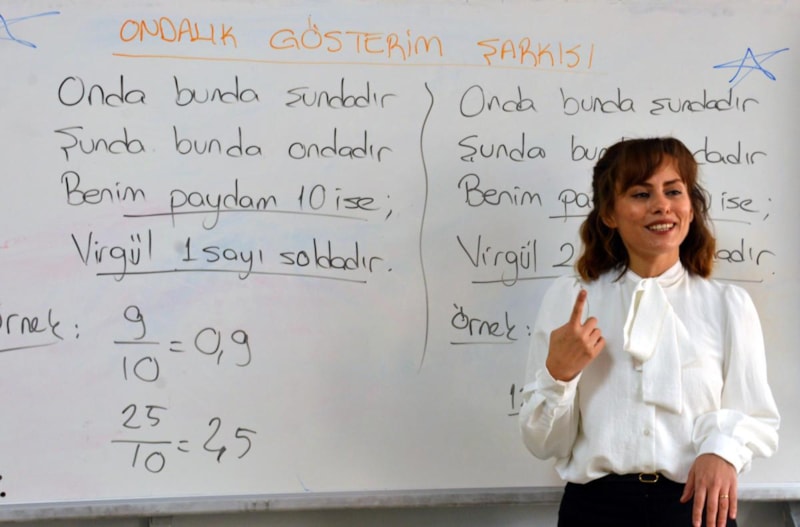 ONDALIK GÖSTERİM ŞARKISI
Onda bunda şundadır
Şunda bunda ondadır
Benim paydam 10 ise;
Virgül 1 sayı soldadır.
Örnek:
9/10 = 0,9
25/10 = 2,5
Onda bunda şundadır
Şunda
Benim ise;
Virgül 2
Örnek: